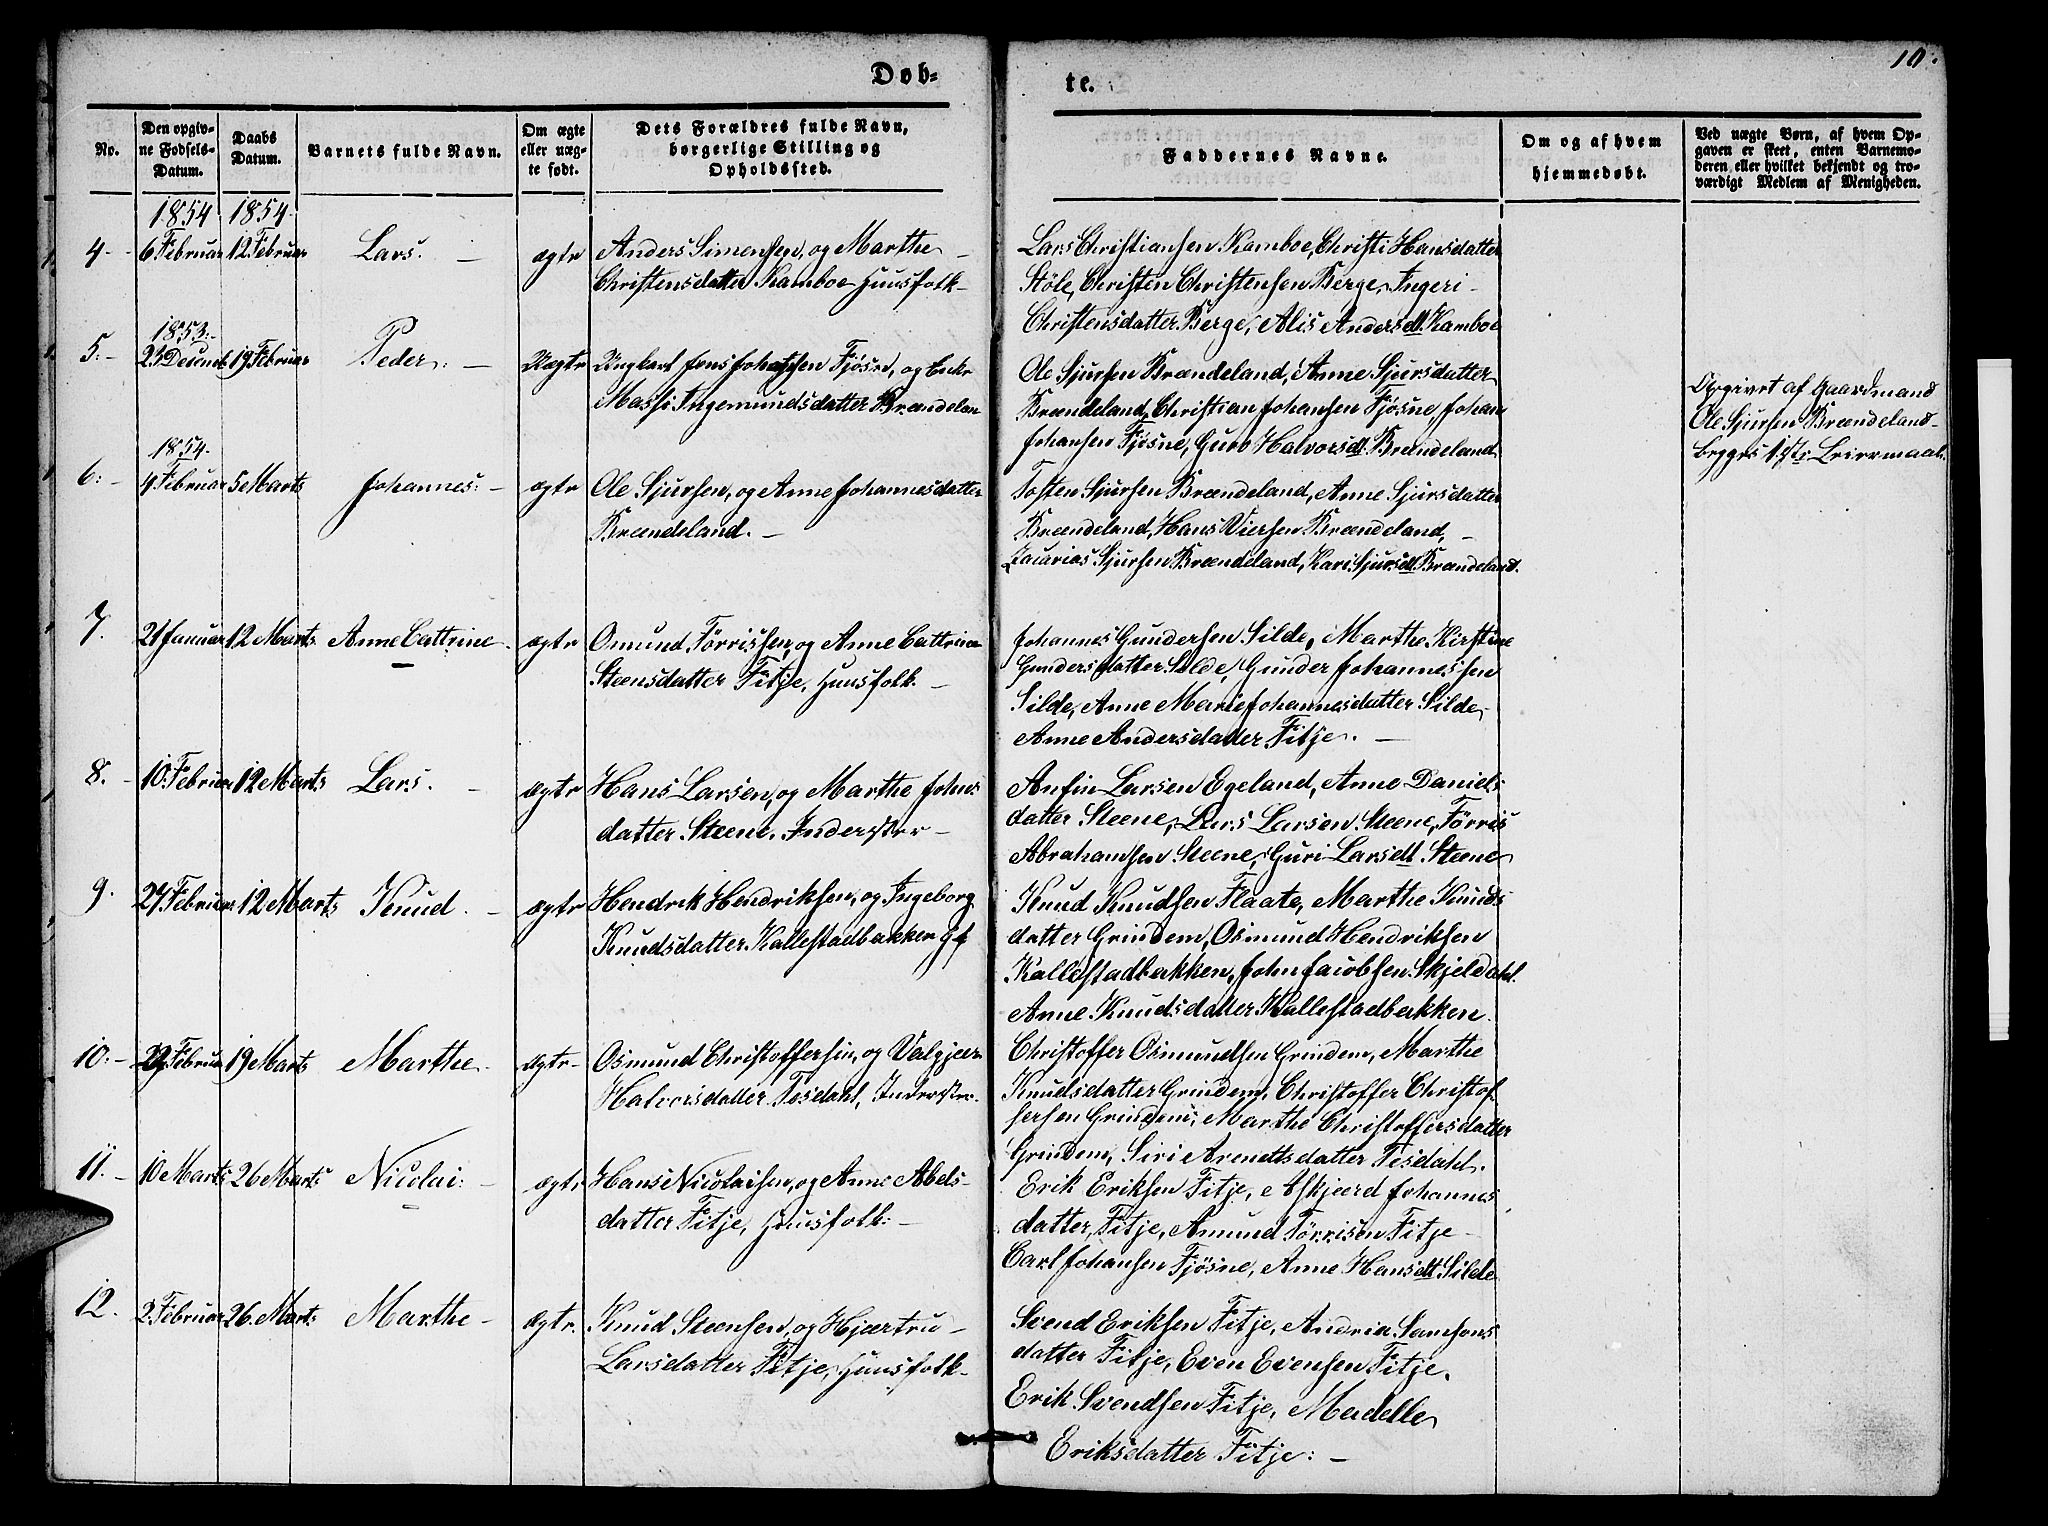 10.
Døb-
te.
No.
Den opgiv-
ne Fødsels-
Datum.
Daabs
Datum.
Barnets fulde Navn.
Om ægte
eller uæg-
te født.
Dets Forældres fulde Navn,
borgerlige Stilling og
Opholdssted.
Faddernes Navne.
Om og af hvem
hjemmedøbt.
Ved uægte Børn, af hvem Op-
gaven er skeet, enten Barnemo-
deren eller hvilket bekjendt og tro-
værdigt Medlem af Menigheden.
1854 1854
4. 6 Februar 12 Februar Lars. ægte Anders Simensen, og Marthe
Christensdatter Kamboe Huusfolk
Lars Christiansen Kamboe, Christi Hansdatter
Støle, Christen Christensen Berge, Ingeri
Christensdatter Berge, Alis Andersdt Kamboe
1853.
5. 23 Decemb 19 Februar Peder. Uægte Ungkarl Jens Johansen Fjøsne, og Enke
Massi Ingemundsdatter Brændelan
Ole Sjursen Brændeland, Anne Sjursdatter
Brændeland, Christian Johansen Fjøsne, Johan
Johansen Fjøsne, Guro Halvorsdt Brændeland
Opgivet af Gaardmand
Ole Sjursen Brændeland
begges 1ste Leiermaal.
1854.
6. 4 Februar 5 Marts Johannes. ægte Ole Sjursen, og Anne Johannesdatter
Brændeland.
Tosten Sjursen Brændeland, Anne Sjursdatter
Brændeland, Hans Viersen Brændeland,
Zacarias Sjursen Brændeland, Kari Sjursdt Brændeland.
7. 21 Januar 12 Marts Anne Cattrine. ægte Omund Tørrissen, og Anne Cattrine
Steensdatter Fitje, Huusfolk.
Johannes Gundersen Silde, Marthe Kirstine
Gundersdatter Silde, Gunder Johannessen
Silde, Anne Marie Johannesdatter Silde,
Anne Andersdatter Fitje.
8. 10 Februar 12 Marts Lars. ægte Hans Larsen, og Marthe Johns
datter Steene, Inderster
Anfin Larsen Egeland, Anne Daniels
datter Steene, Lars Larsen Steene, Tørris
Abrahamsen Steene, Guri Larsdt Steene
9. 27 Februar 12 Marts Knud. ægte Hendrik Hendriksen, og Ingeborg
Knudsdatter Kallestadbakken gf
Knud Knudsen Flaate, Marthe Knuds
datter Grindem, Osmund Hendriksen
Kallestadbakken, John Jacobsen Skjeldahl.
Anne Knudsdatter Kallestadbakken.
10. Februar 19 Marts Marthe. ægte Osmund Christoffersen, og Valgjeer
Halvorsdatter Tesdahl, Inderster.
Christoffer Osmundsen Grindem, Marthe
Knudsdatter Grindem, Christoffer Christof
fersen Grindem, Marthe Christoffersdatter
Grindem, Siri Arentsdatter Tesdahl.
11. 10 Marts 26 Marts Nicolai. ægte Hans Nicolaisen, og Anne Abels-
datter Fitje, Huusfolk.
Erik Eriksen Fitje, Askjerd Johannes
datter, Fitje, Amund Tørrisen Fitje
Carl Johansen Fjøsne, Anne Hansdt Silde
12. 2 Februar 26 Marts Marthe ægte. Knud Steensen, og Hjertru
Larsdatter Fitje, Huusfolk
Svend Eriksen Fitje, Andrea Samsons
datter Fitje, Even Evensen Fitje.
Erik Svendsen Fitje, Madelle
Eriksdatter Fitje.